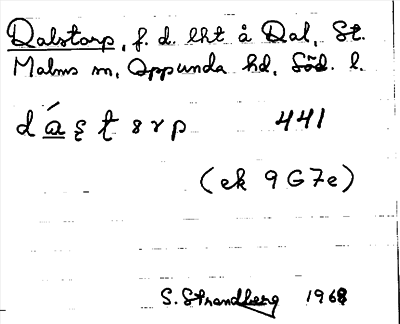 Dalstorp, f. d. lht å Dal, St.
Malms sn, Oppunda hd, Söd. l.
441
(ek 9G7e)
S. Strandberg 1968